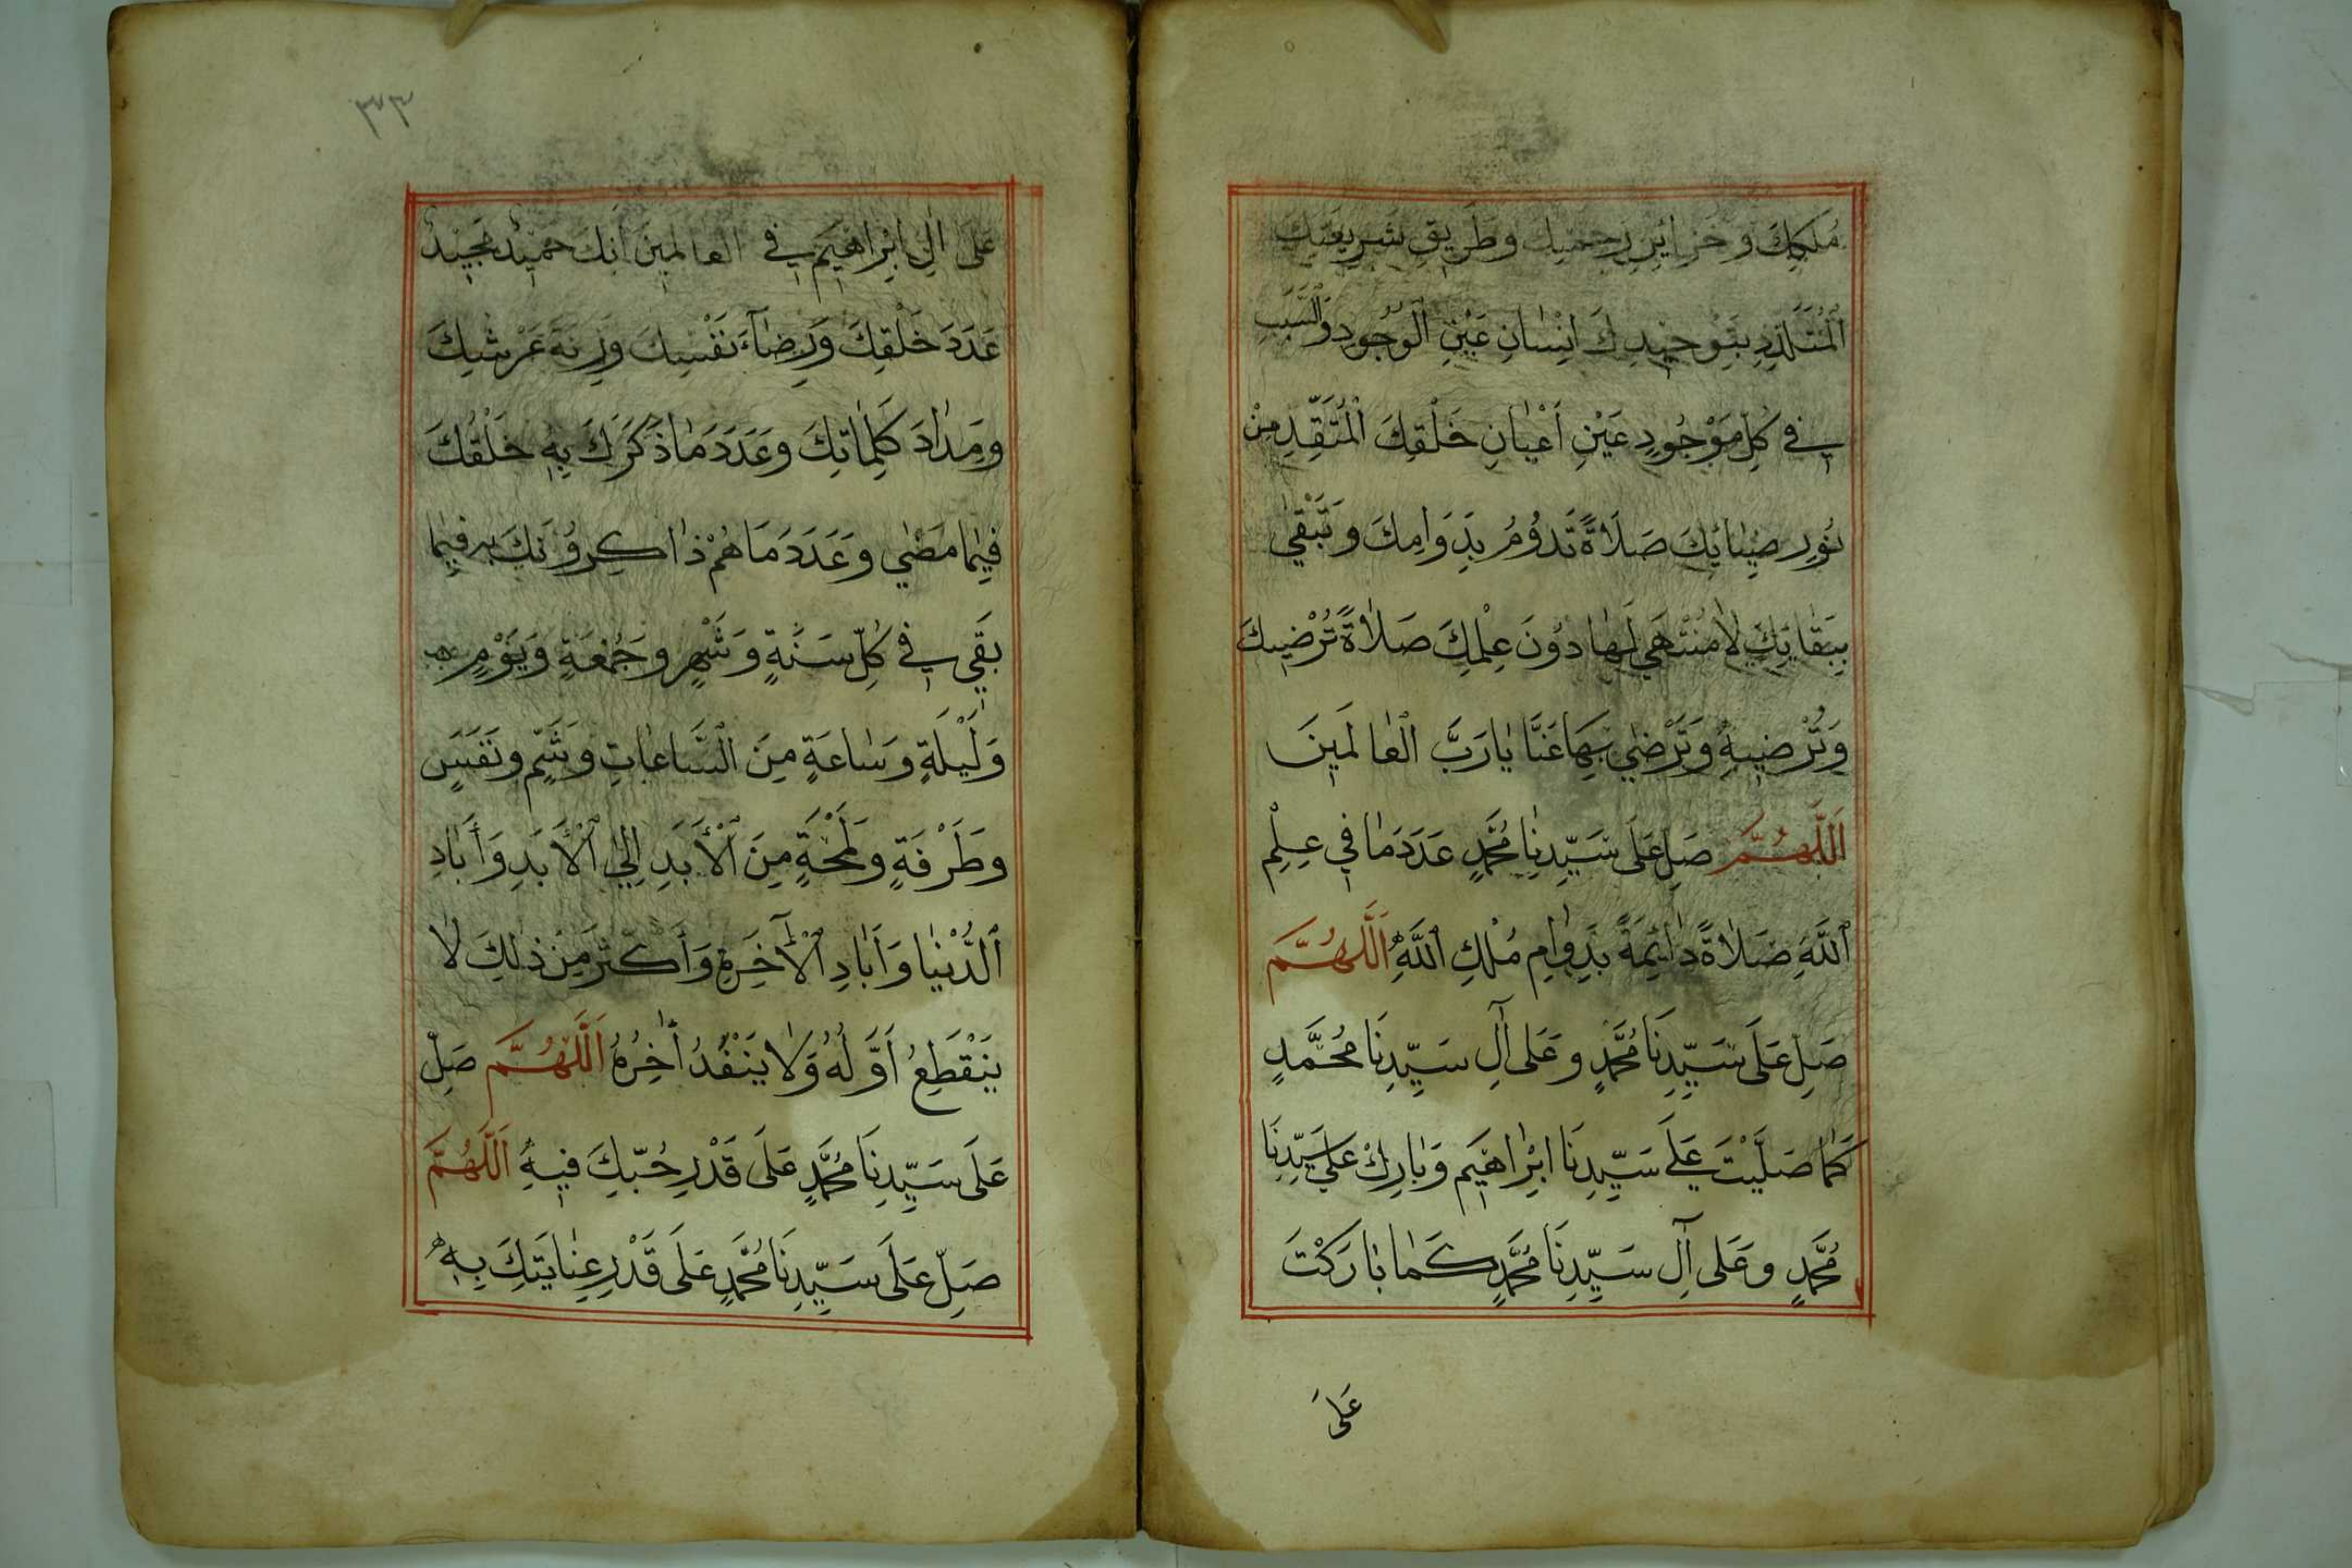 مُلْكِكَ وَخَزَائِنِ رَحْمَتِكَ وَطَرِيقِ شَرِيعَتِكَ
الْمُتَلَذِّذِ بِتَوْحِيدِكَ اِنْسَانِ عَيْنِ الْوُجُودِ وَالسَّبَبِ
فِي كُلِّ مَوْجُودٍ عَيْنِ اَعْيَانِ خَلْقِكَ الْمُتَقَدِّمِ مِنْ
نُورِ ضِيَائِكَ صَلَاةً تَدُومُ بِدَوَامِكَ وَتَبْقٰى
بِبَقَائِكَ لَا مُنْتَهٰى لَهَا دُونَ عِلْمِكَ صَلَاةً تُرْضِيكَ
وَتُرْضِيهِ وَتَرْضٰى بِهَا عَنَّا يَا رَبَّ الْعَالَمِينَ
اَللّٰهُمَّ صَلِّ عَلَى سَيِّدِنَا مُحَمَّدٍ عَدَدَ مَا فِي عِلْمِ
اللّٰهِ صَلَاةً دَائِمَةً بِدَوَامِ مُلْكِ اللّٰهِ اَللّٰهُمَّ
صَلِّ عَلَى سَيِّدِنَا مُحَمَّدٍ وَعَلَى آلِ سَيِّدِنَا مُحَمَّدٍ
كَمَا صَلَّيْتَ عَلَى سَيِّدِنَا اِبْرَاهِيمَ وَبَارِكْ عَلَى سَيِّدِنَا
مُحَمَّدٍ وَعَلَى آلِ سَيِّدِنَا مُحَمَّدٍ كَمَا بَارَكْتَ
عَلَى
٣٣
عَلَى آلِ اِبْرَاهِيمَ فِي الْعَالَمِينَ اِنَّكَ حَمِيدٌ مَجِيدٌ
عَدَدَ خَلْقِكَ وَرِضَاءَ نَفْسِكَ وَزِنَةَ عَرْشِكَ
وَمِدَادَ كَلِمَاتِكَ وَعَدَدَ مَا ذَكَرَكَ بِهِ خَلْقُكَ
فِيمَا مَضٰى وَعَدَدَ مَا هُمْ ذَاكِرُونَكَ بِهِ فِيمَا
بَقِيَ فِي كُلِّ سَنَةٍ وَشَهْرٍ وَجُمُعَةٍ وَيَوْمٍ
وَلَيْلَةٍ وَسَاعَةٍ مِنَ السَّاعَاتِ وَشَمٍّ وَنَفَسٍ
وَطَرْفَةٍ وَلَمْحَةٍ مِنَ الْأَبَدِ اِلَى الْأَبَدِ وَأَبَادِ
الدُّنْيَا وَأَبَادِ الْآخِرَةِ وَأَكْثَرَ مِنْ ذٰلِكَ لَا
يَنْقَطِعُ اَوَّلُهُ وَلَا يَنْفَدُ اٰخِرُهُ اَللّٰهُمَّ صَلِّ
عَلَى سَيِّدِنَا مُحَمَّدٍ عَلَى قَدْرِ حُبِّكَ فِيهِ اَللّٰهُمَّ
صَلِّ عَلَى سَيِّدِنَا مُحَمَّدٍ عَلَى قَدْرِ عِنَايَتِكَ بِهِ